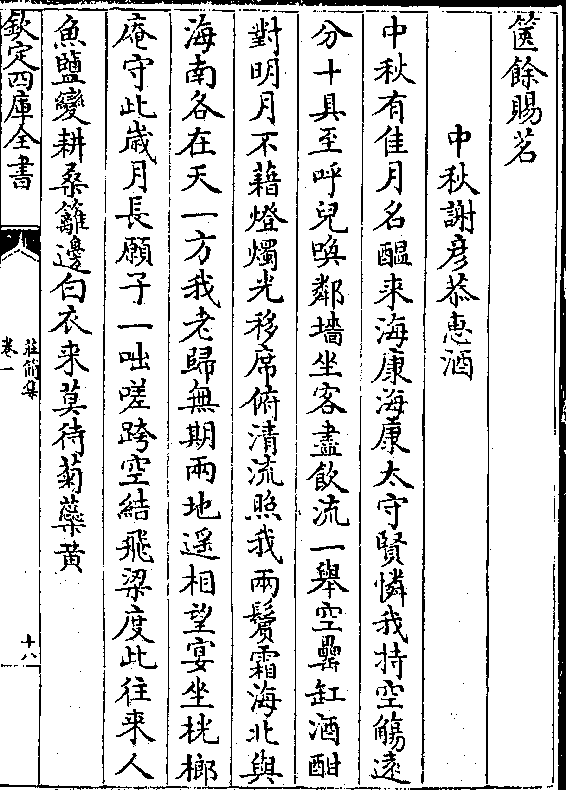 篋餘賜茗
中秋謝彦恭惠酒
中秋有佳月名醖来海康海康太守賢憐我持空觴遠
分十具至呼兒喚鄰墻坐客盡飲流一舉空罍缸酒酣
對明月不藉燈燭光移席俯清流照我兩鬢霜海北與
海南各在天一方我老歸無期兩地遥相望宴坐桄榔
庵守此歲月長願子一咄嗟跨空結飛梁度此往来人
魚鹽變耕桑籬邊白衣来莫待菊蘂黄
欽定四庫全書
莊簡集
卷一
十八